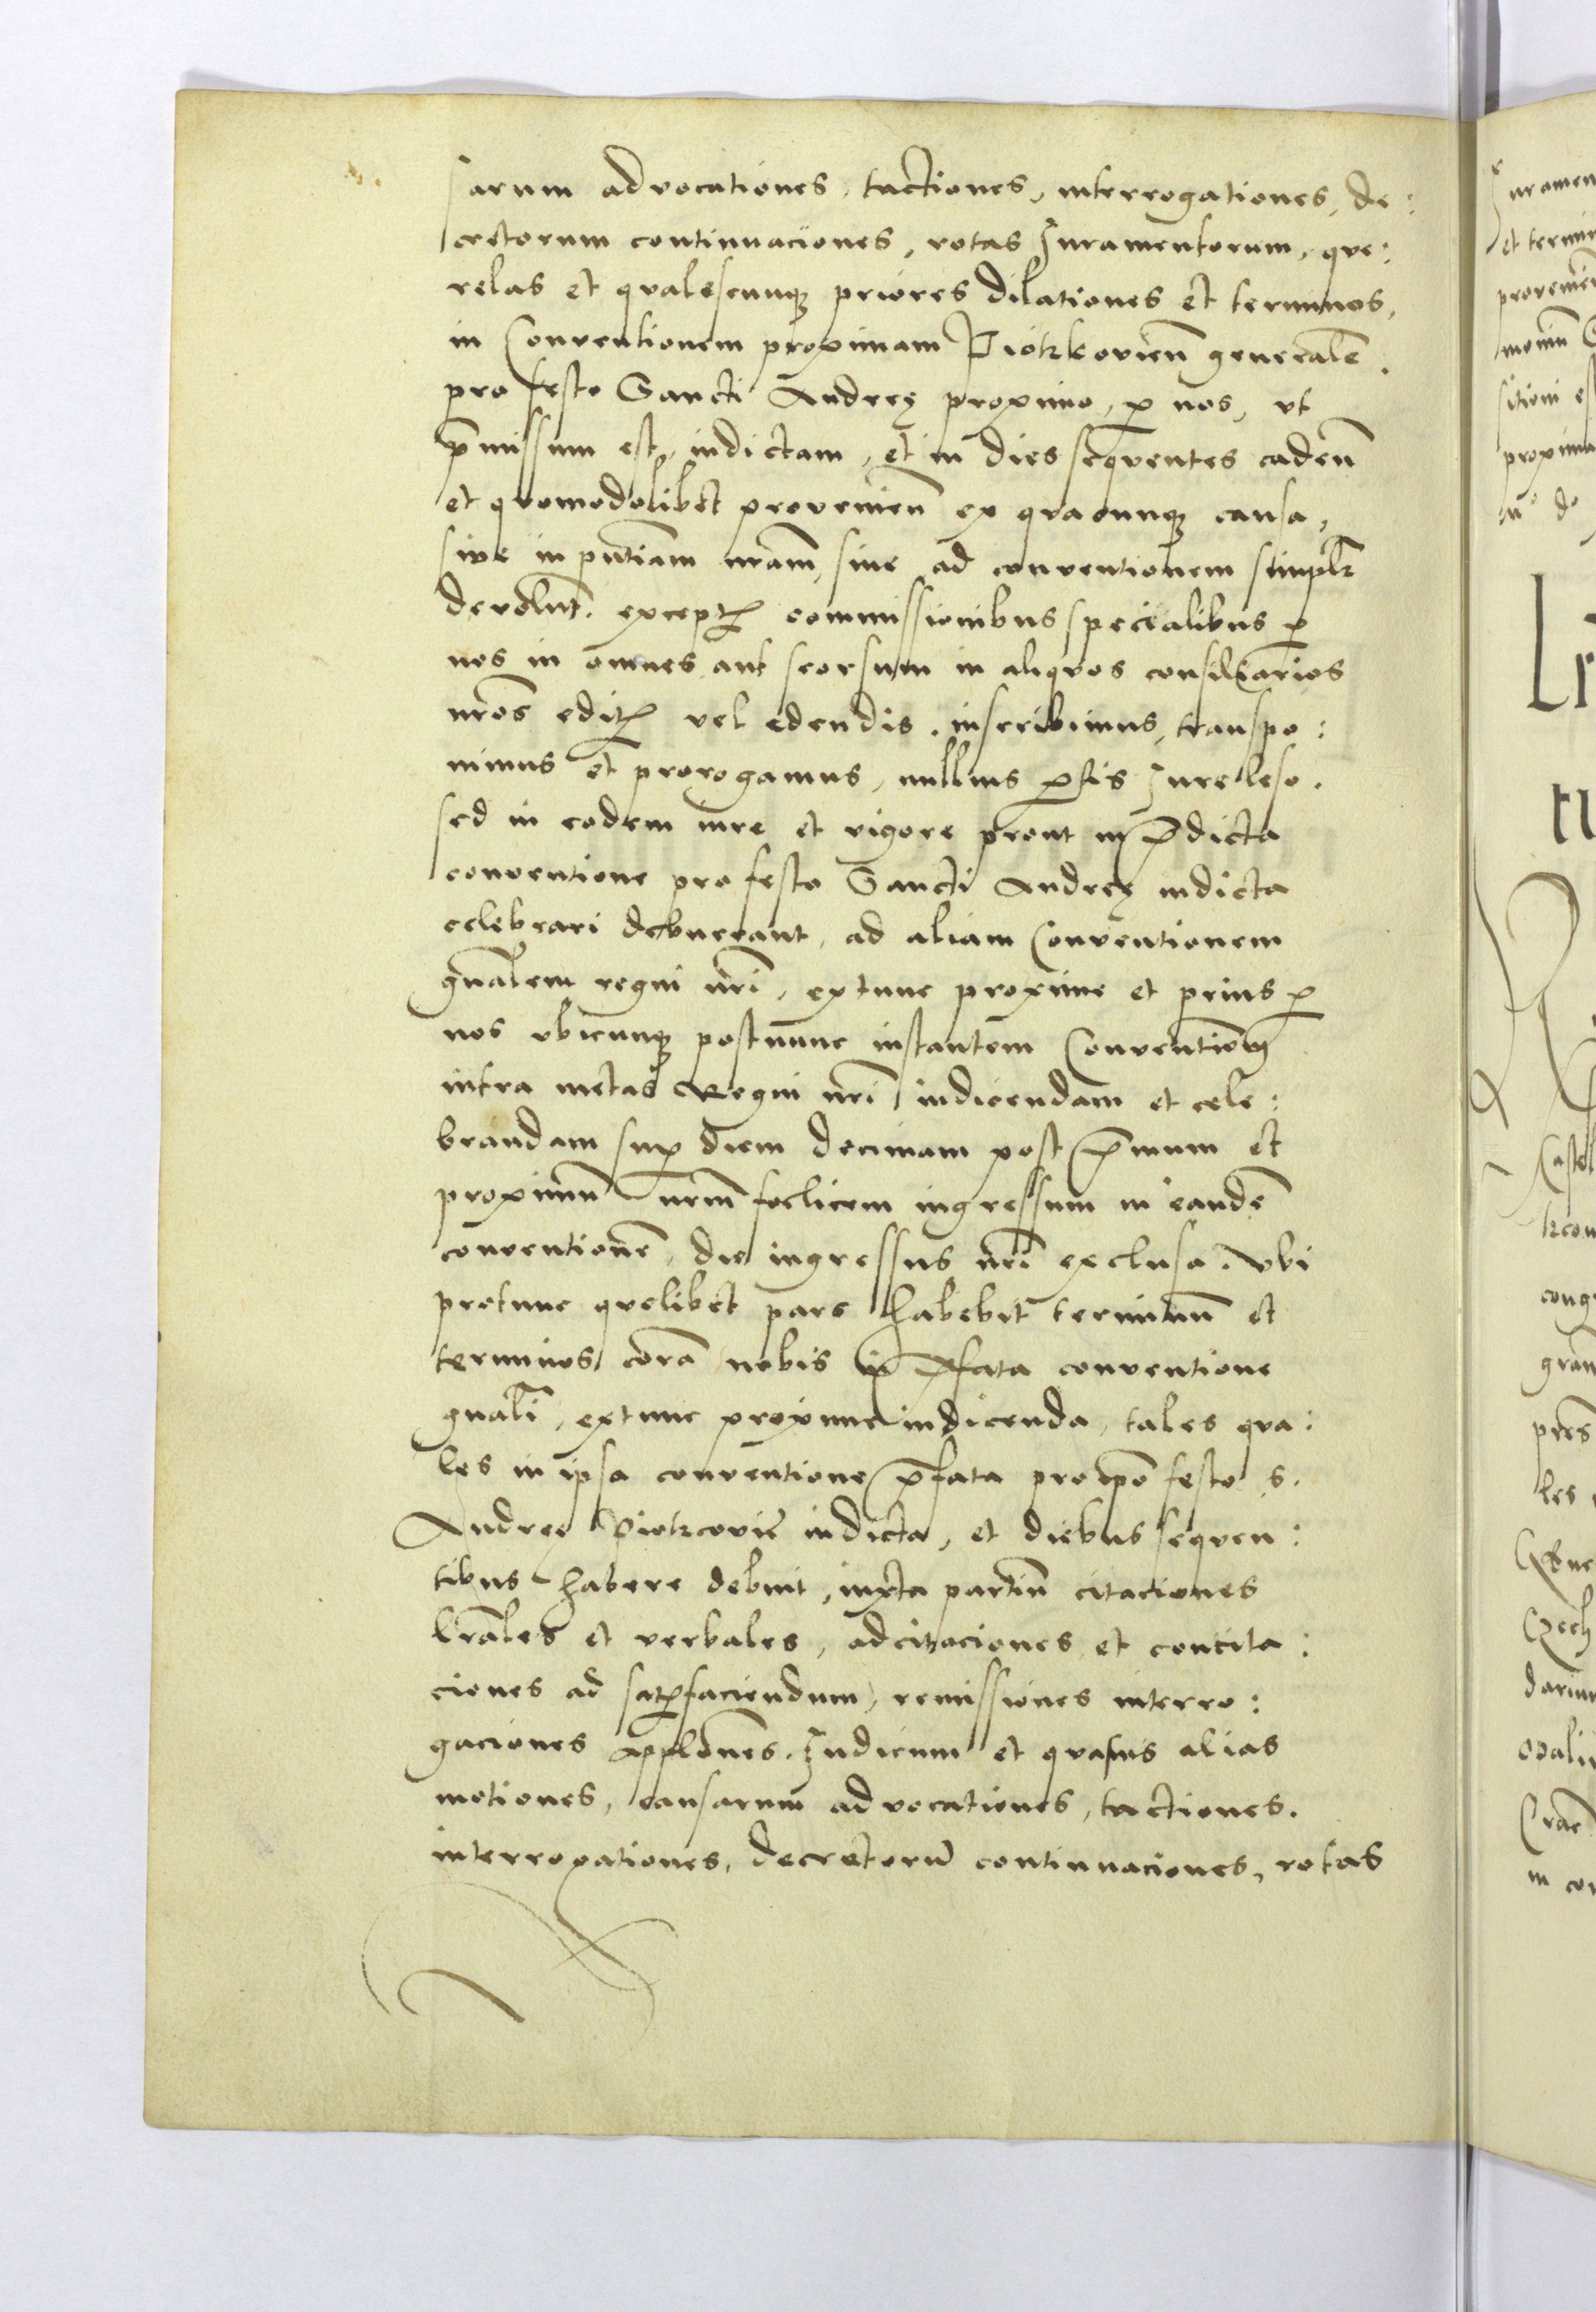 sarum advocationes, tactiones, interrogationes, de:
cretorum continuaciones, rotas Juramentorum, que:
relas et qualescunqꝫ priores dilationes et terminos,
in Conventionem proximam Piotrkovień generalē.
pro festo Sancti Andreę proximo, ꝑ nos, ut
p̄missum est, indictam, et in dies sequentes cadeñ
et quomodolibet provenieñ ex quacunqꝫ causa,
sive in pñtiam nr̄am, sive ad conventionem simplr̄
devolut. exceptꝭ commissionibus specialibus ꝑ
nos in omnes aut seorsum in aliquos consiliarios
nr̄os editꝭ vel edendis. inscribimus, transpo:
nimus et prorogamus, nullius ꝑtis Jure leso.
sed in eodem iure et rigore prout in p̄dicta
conventione pro festo Sancti Andreę indicta
celebrari debuerant, ad aliam Conventionem
gn̄alem regni nr̄i, extunc proxime et prius ꝑ
nos ubicunqꝫ postnunc instantem Conventionē
intra metas Regni nr̄i indicendam et cele:
brandam suꝑ diem decimam post p̄mum et
proximū nr̄m foelicem ingressum in eandē
conventionē, die ingressus nr̄i exclusa. Ubi
protunc quelibet pars habebit terminū et
terminos corā nobis in p̄fata conventione
gn̄ali, extunc proxime indicenda, tales qua:
les in ipsa conventione p̄fata pro ipo festo s.
Andree Piotrcovie indicta, et diebus sequen:
tibus habere debuit, iuxta partiū citaciones
lr̄ales et verbales, adcitaciones et concita:
ciones ad satꝭfaciendum, remissiones interro:
gaciones applōnes. Judicum et quasvis alias
motiones, causarum advocationes, tactiones.
interrogationes, decretorū continuaciones, rotas